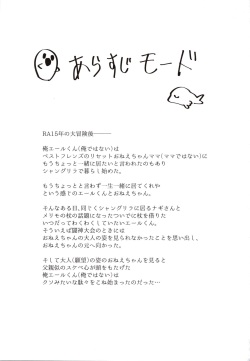 あらすじモード
RA15年の大冒険後―――
俺エールくん(俺ではない)は
ベストフレンズのリセットおねえちゃんママ(ママではない)に
もうちょっと一緒に居たいと言われたのもあり
シャングリラで暮らし始めた。
もうちょっとと言わず一生一緒に居てくれや
という感じのエールくんだった。
そんなある日、同じくシャングリラに居るナギさんと
メリモの杖の話題になったついでに杖を借りた
いつだってわくわくしていたいエールくん。
そういえば闘神大会のときには
おねえちゃんの大人の姿を見られなかったことを思い出し、
おねえちゃんの元へ向かった。
そして大人(願望)の姿のおねえちゃんを見ると
父親似のスケベ心が頭をもたげた
俺エールくん(俺ではない)は
クソみたいな駄々をこね始まったのだった…